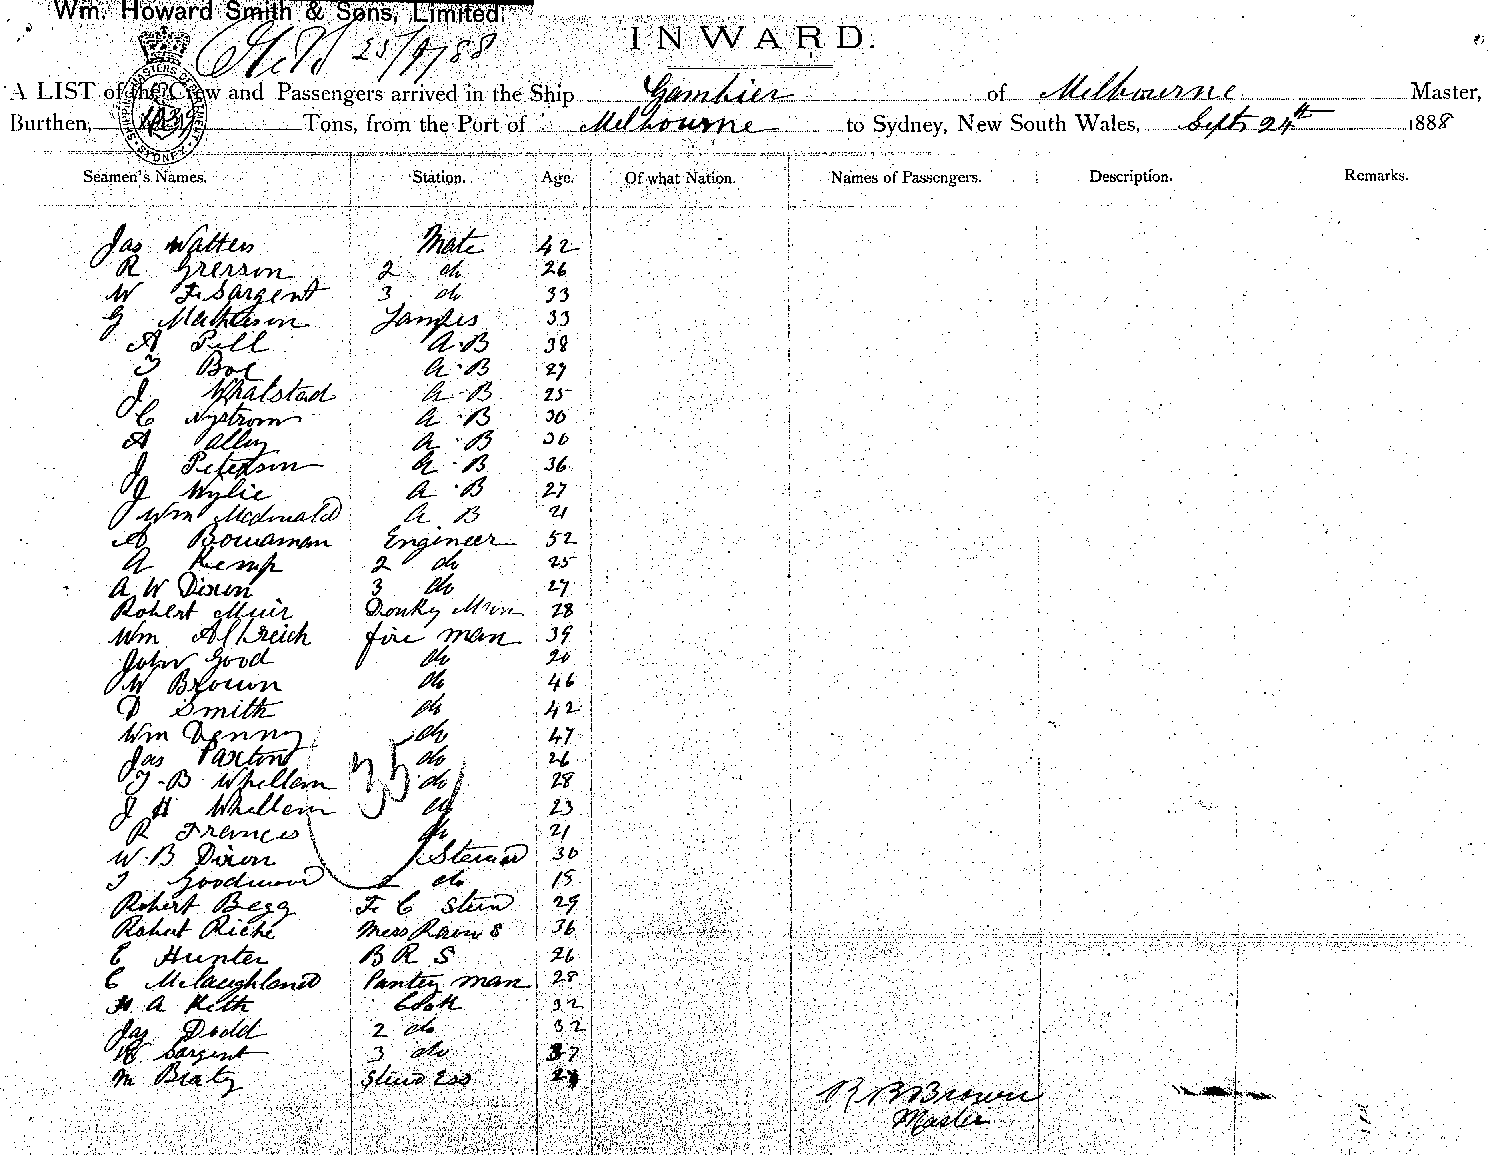 Wm. Howard Smith & Sons, Limited
25/9/88
INWARD.
A LIST of the Crew and Passengers arrived in the Ship Gambier of Melbourne Master,
Burthen, Tons, from the Port of Melbourne to Sydney, New South Wales, Septr 24th 1888
Seamen's Names. Station. Age. Of what Nation. Names of Passengers. Description. Remarks.
Jas Walters Mate 42
R Grerson 2 do 26
W F Sargent 3 do 33
G Matheson Lamps 33
A Pell A.B 38
T Boe A.B 27
J Whalstad A.B 25
C Nystrom A.B 30
A Alley A.B 30
J Peterson A.B 36
J Wylie A.B 27
Wm Mcdonald A B 21
A Bowaman Engineer 52
A Kemp 2 do 25
A W Dixon 3 do 27
Robert Muir Donky Man 28
Wm Albreich fire man 39
John Good do 20
W Brown do 46
D Smith do 42
Wm Denny do 47
Jas Paxton do 26
T-B Whellam do 28
35
J H Whellam do 23
R Frances do 21
W.B Dixon Steward 30
T Goodwood 2 do 19
Robert Begg F. C Stewd 29
Robert Riche Mess Room S 36
E Hunter B R S 26
C McLaughland Pantry man 28
H A Keth Cook 32
Jas Dodd 2 do 32
Sargent 3 do 37
M Beaty Stewdess
R B Brown
Master